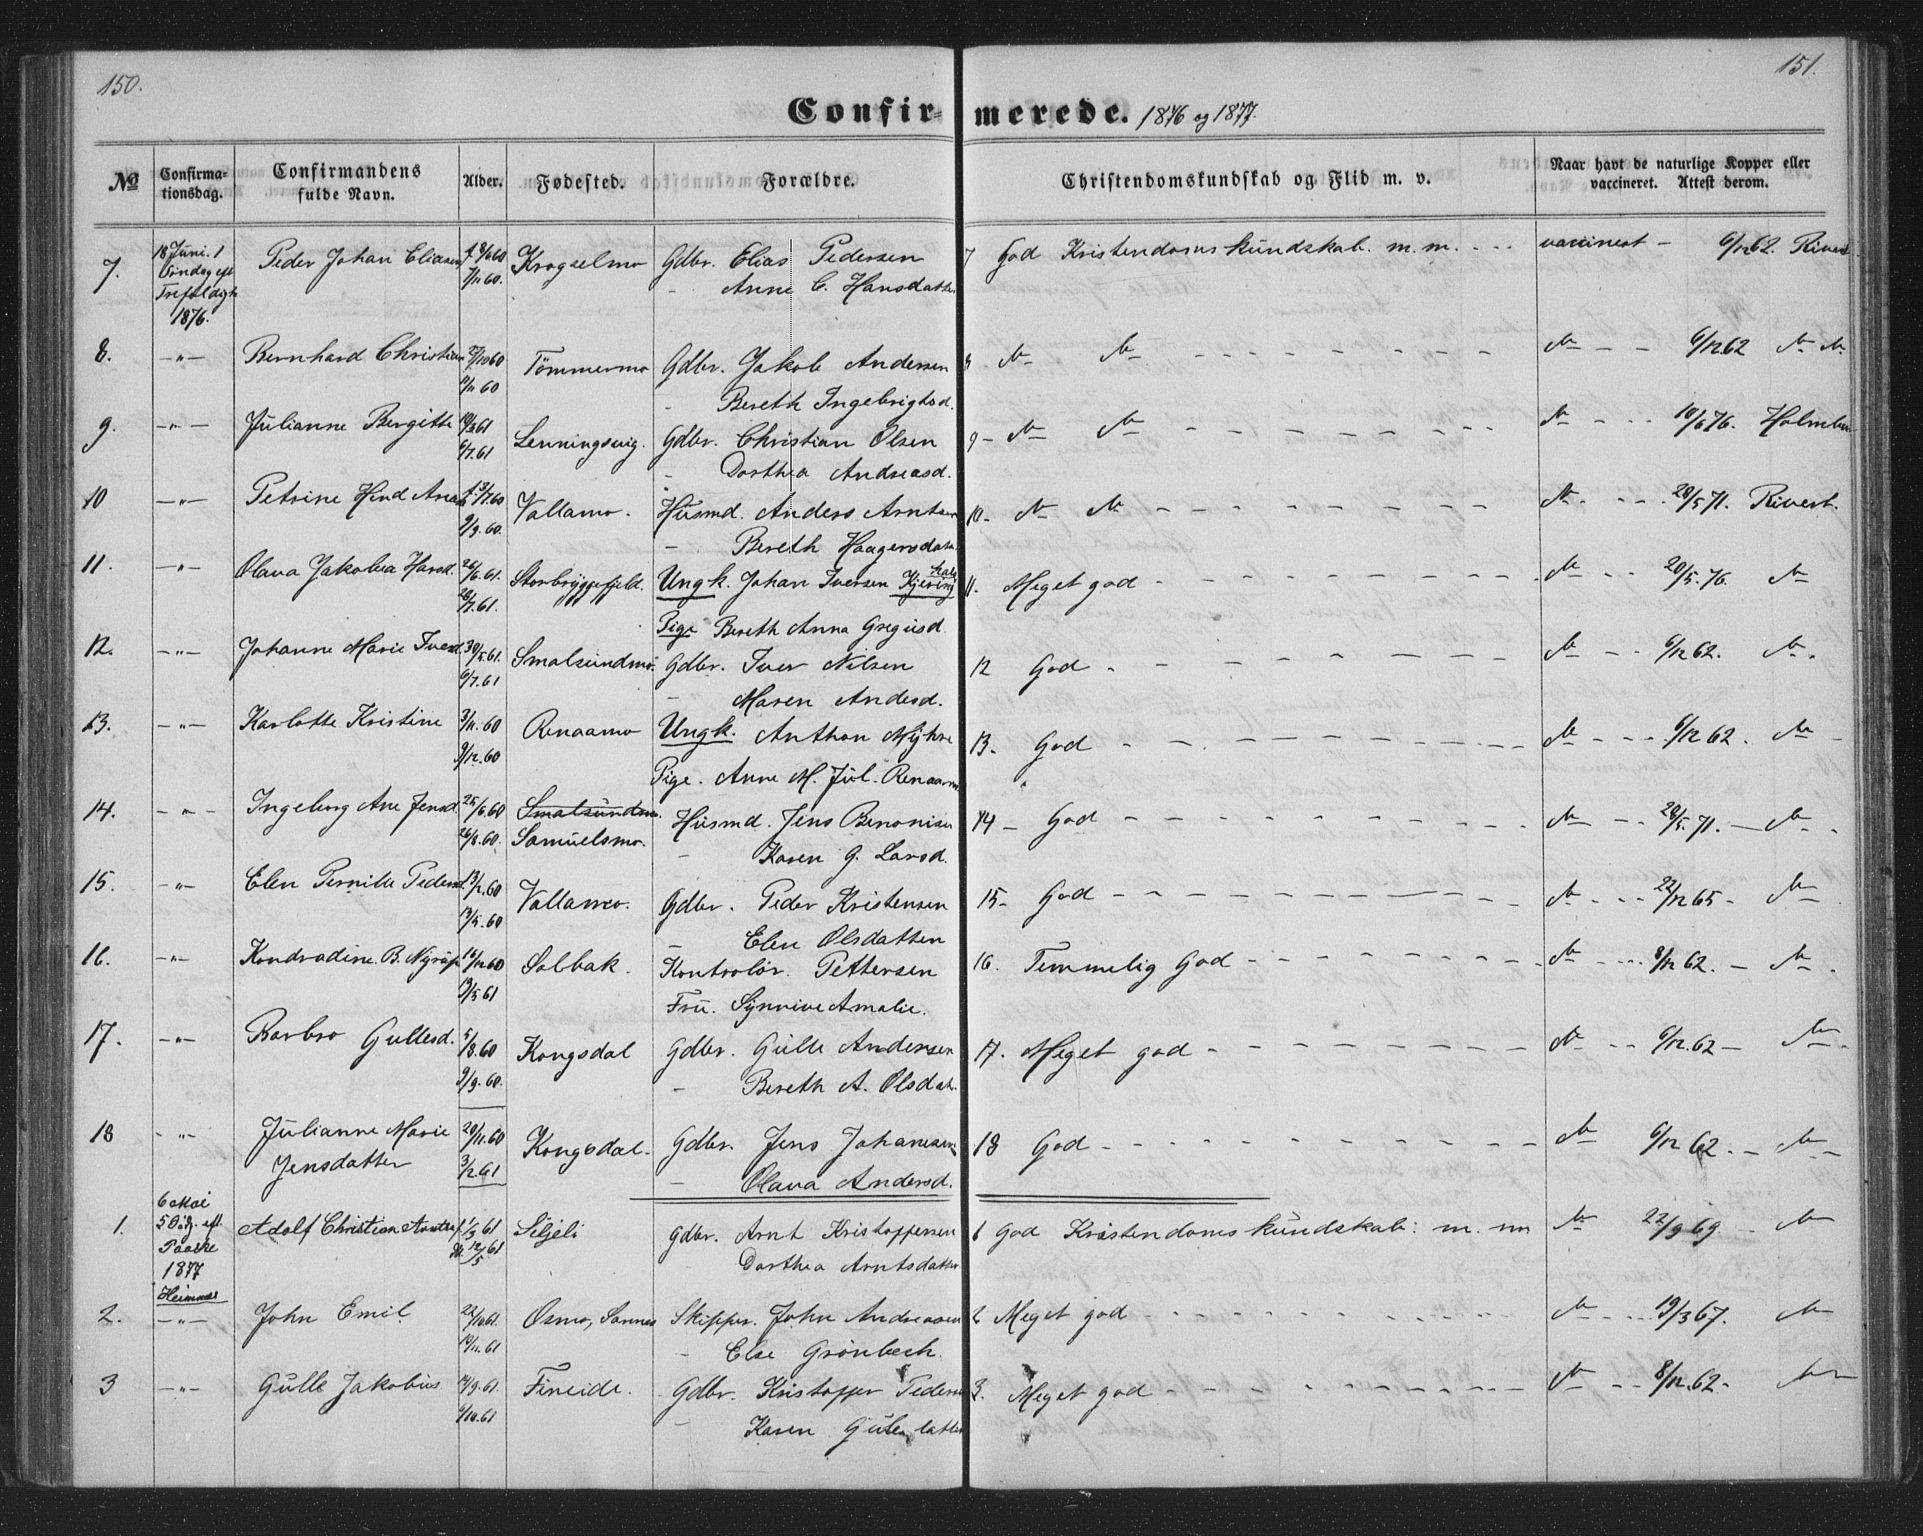 150.
151.
Confirmerede. 1876 og 1877.
No
Confirmationsdag.
Confirmandens fulde Navn.
Alder.
Fødested.
Forældre.
Christendomskundskab og Flid m. v.
Naar havt de naturlige Kopper eller vaccineret. Attest derom.
7. 18 Juni. 1 Peder Johan Eliasen Krogselmo Gdbr. Elias Pedersen 7 God Kristendomskundskab. m. m. vaccineret 6/12 62. Rivert
1876. 7/11 60. Anne C. Hansdatter
8. -"- Bernhard Christian 7/10 60 Tömmermo Gdbr. Jakob Andersen 8 do do do 6/12 62 do do
11/11 60 Bereth Ingebrigtsd.
9. -"- Julianne Bergitte Lenningsvig. Gdbr. Christian Olsen 9 do do do 10/6 76.
6/7. 61 Dorthea Andreasd.
10 -"- Petrine Vallamo. Husmd. Anders Arntsen 10. do do do 28/5 71. Rivert.
9/9. 60. Bereth Haagensdatr.
11. -"- Olava Jakobea Hansd. 26/6. 61. Storbryggefjeld. Ungk. Johan Iversen 11. Meget god do 20/5. 76. do
28/7. 61. Pige Bereth Anna Gregusd.
12. -"- Johanne Marie Iversd. 30/5. 61. Smalsundmo. Gdbr. Iver Nilsen 12 God do 6/12 62. do
6/7. 61 Maren Andersd.
13. -"- Karlotte Kristine 3/11. 60 Renaamo Ungk. Anthon Myhre 13. God do 6/12 62. do
9/12. 60 Pige. Anne M. Jul. Renaamo
14. -"- Ingeborg Ane Jensd. 25/6. 60 Smalsundmo. Husmd. Jens Benonisen 14 God do 28/5. 71. do
26/8. 60. Samuelsmo. Karen G. Larsd.
15. -"- Elen Pernille Pedersd. 13/2. 60 Vallamo. Gdbr. Peder Kristensen 15 God do 22/12 65 do
13/5. 60 Elen Olsdatter
16. -"- Kondradine B. Nyrup 16/12 60 Solbak. Kontrolør. Pettersen 16. Temmelig God do 8/12 62. do
19/5 61 Fru. Synnive Amalie.
17. -"- Barbro Gullesd. 5/8. 60 Kongsdal Gdbr. Gulle Andersen 17. Meget god do 6/12. 62 do
9/9. 60. Bereth A. Olsdatr.
18 -"- Julianne Marie 20/11. 60 Kongsdal. Gdbr. Jens Johannesen 18 God do 6/12 62. do
Jensdatter 3/2. 61 Olava Andersd.
6 Mai
1. 5 Sdg. eft. Adolf Christian 1/3 61 Siljeli Gdbr. Arnt Kristoffersen 1 God Kristendomskundskab: m. m do 22/9 69 do
Paaske 12/5 61 Dorthea Arntsdatter
1877
Heimnes
2. -"- John Emil 22/10 61. Osmo, Sannes Skipper. John Andreasen 2 Meget god do 19/3 67. do
14/11. 61 Else Grönbech.
3 -"- Gulle Jakobus 14/9. 61. Fineide. Gdbr. Kristoffer Pedersen 3. Meget god do 8/12. 62. do
9/10. 61 Karen